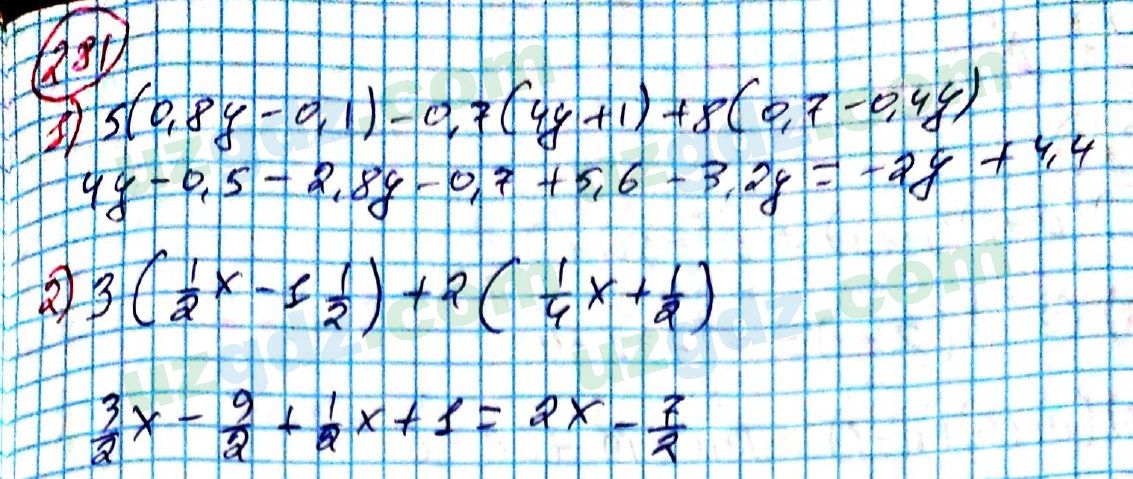 281
1) 5(0,8y - 0,1) - 0,7(4y + 1) + 8(0,7 - 0,4y)
4y - 0,5 - 2,8y - 0,7 + 5,6 - 3,2y = -2y + 4,4
2) 3(1/2 x - 1 1/2) + 2(1/4 x + 1/2)
3/2 x - 9/2 + 1/2 x + 1 = 2x - 7/2
uzgdz.com
uzgdz.com
uzgdz.com
uzgdz.com